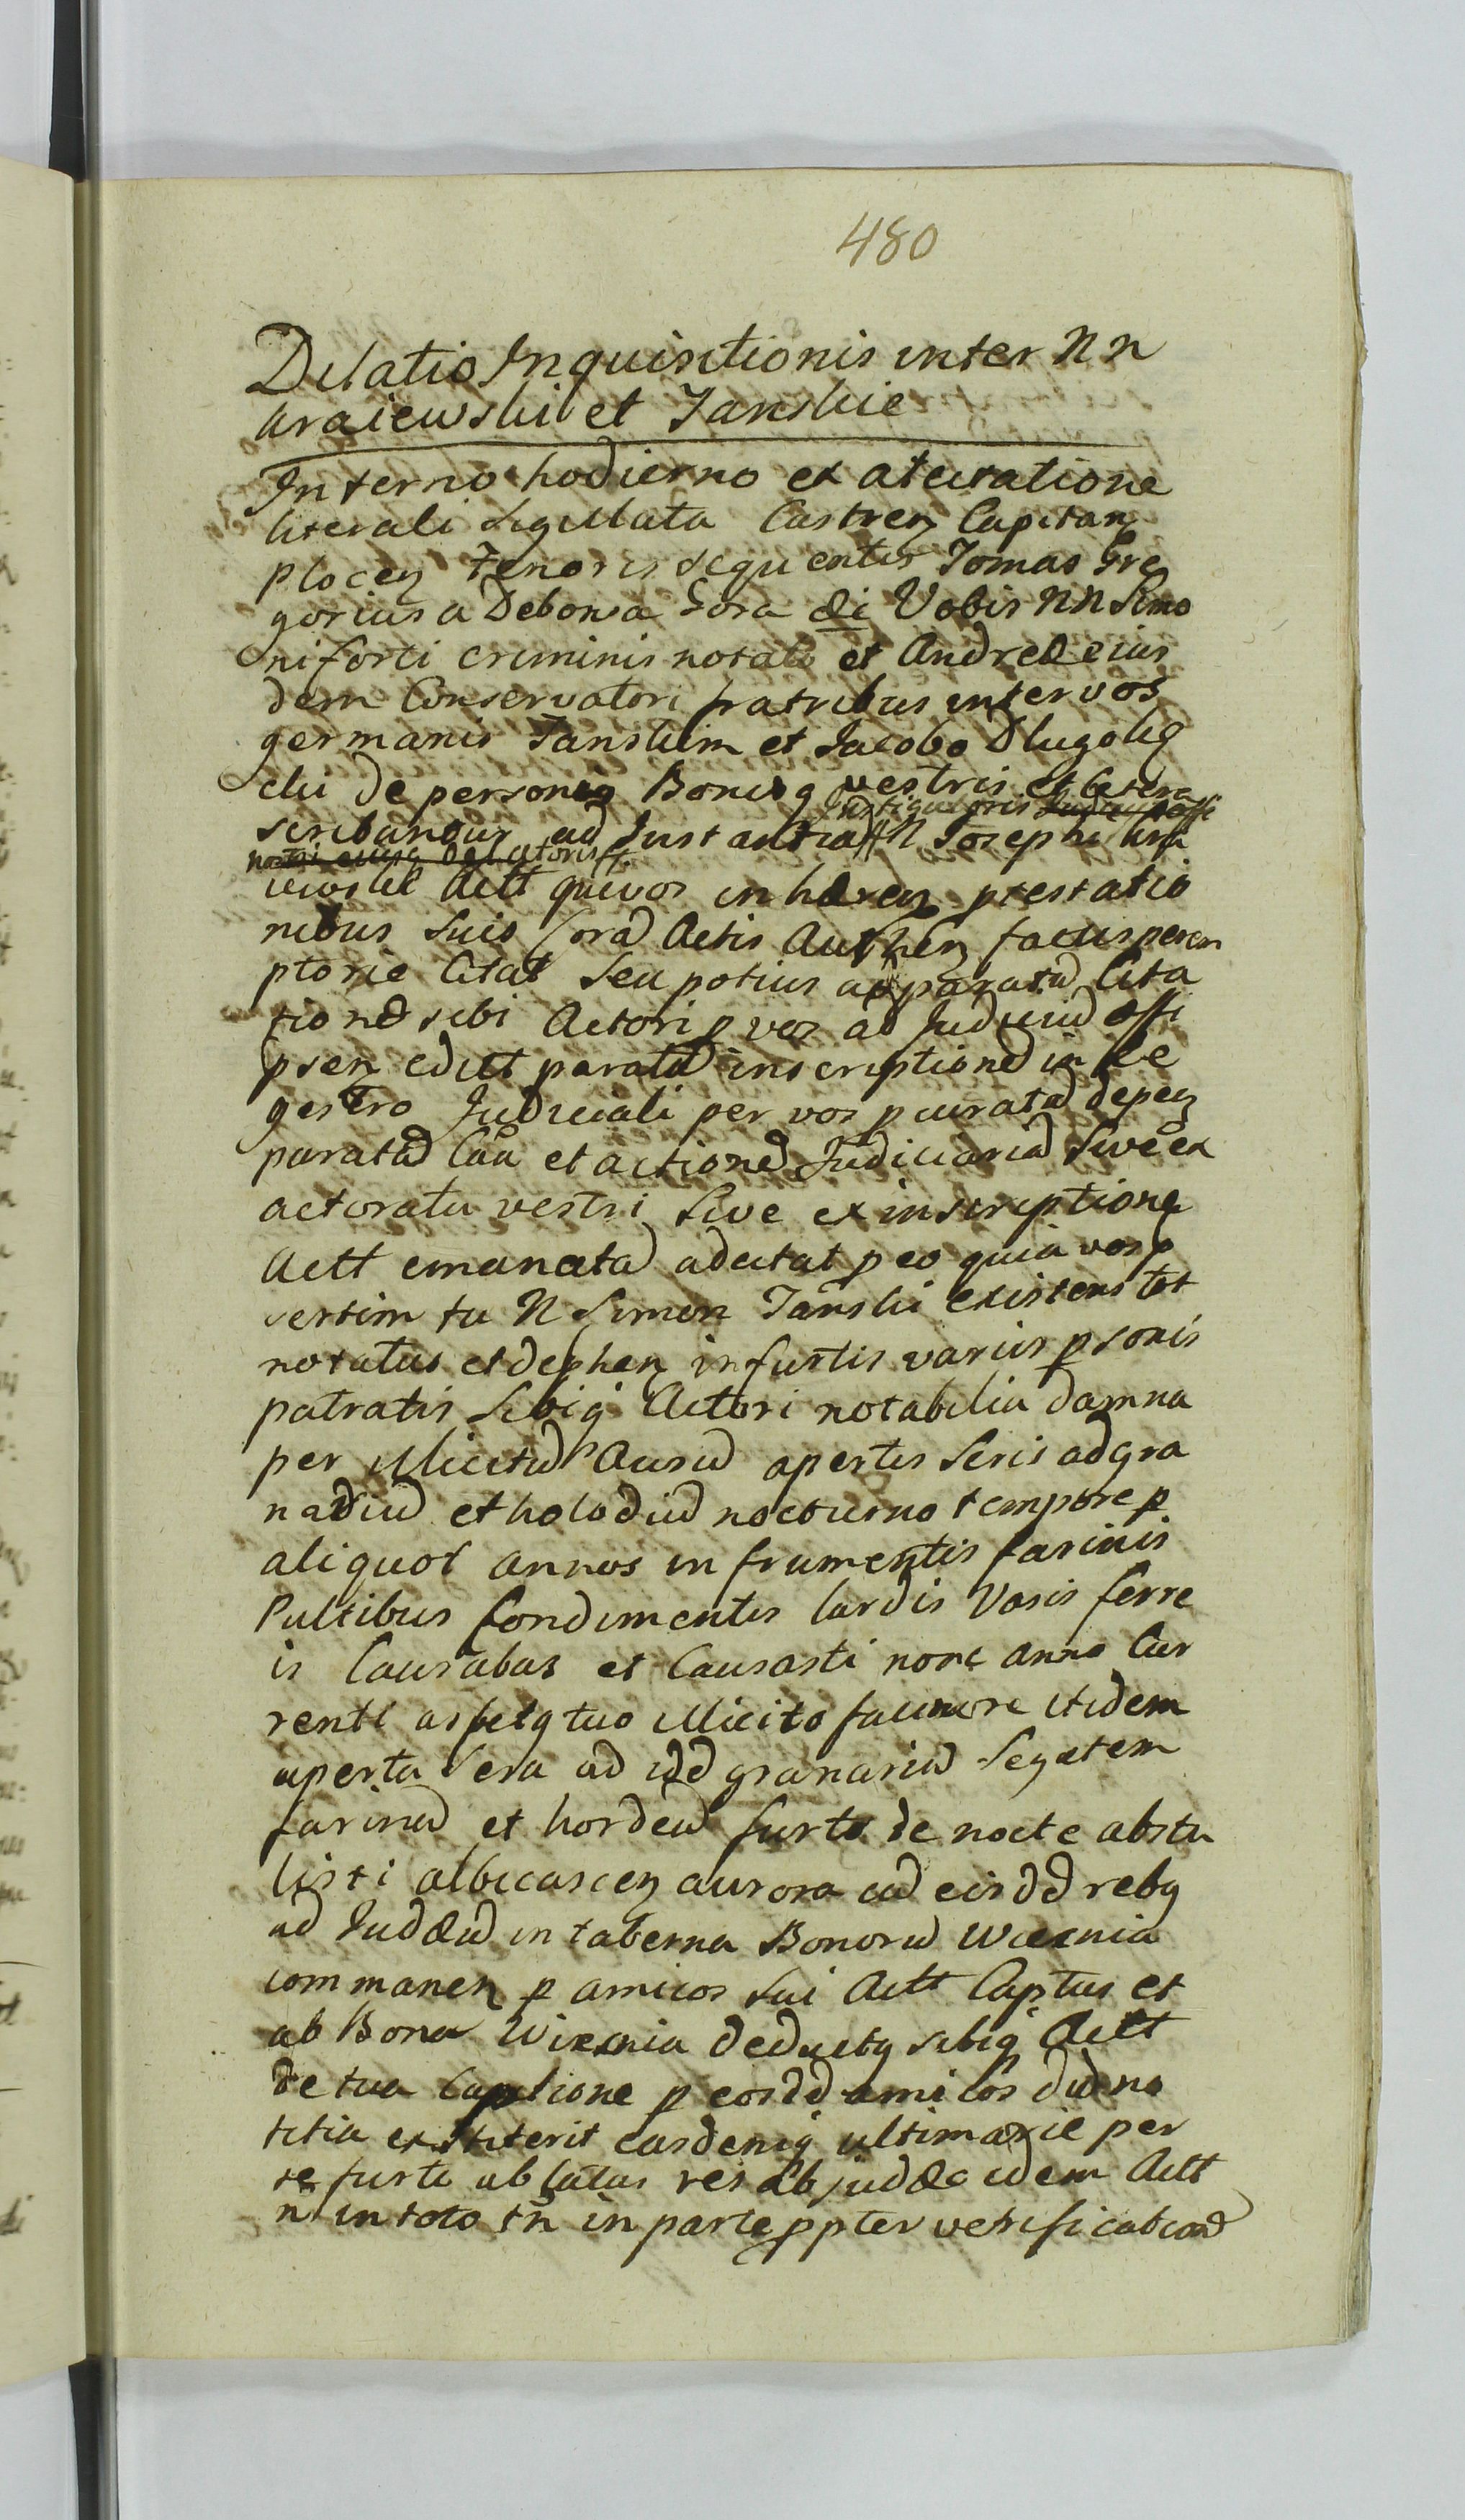 480
Dilatio Inquisitionis inter NN
Kraiewski et Tanskie
In termo hodierno ex atcitatione
literali sigillata Castren Capitan
plocen tenoris sequentis Tomas Gre
gorius a Debowa Gora &c Vobis NN Simo
ni forti criminis notato et Andreæ eius
dem Conservatori fratribus inter vos
germanis Tanskim et Jacobo Dlugoleg
cki de personis Bonisq vestris et Cetera
Instigatoris Judicii offi
scribantur ad Instantiad N Josephi Kra
nostri eiusq Delatoris
iewski Actt qui vos inhæren ptestatio
nibus suis Corad Actis Authen factis perem
ptorie Citat seu potius ad paratad Cita
tioned sibi Actori p vos ad Judiciud offi
psen editt paratad inscriptioned in Re
gestro Judiciali per vos pcuratad depen
paratad Caa et actioned Judiciariad sive ex
actoratu vestri sive ex inscriptione
Actt emanatad adcitat p eo quia vos p
sertim tu N Simon Tanski existens tot
notatus et dephen in furtis variis psonis
patratis sibiq Actori notabilia damna
per illicitud Ausud apertis seris ad gra
nariud et holodiud nocturno tempore p
aliquot annos in frumentis farinis
Pultibus Condimentis lardis Vasis ferre
is Causabas et Causasti nonc anno Cur
renti ausuq tuo illicito facinore itidem
aperta sera ad idd granariud Segetem
farinad et hordeud furto de nocte abstu
listi albicascen aurora cud eisdd rebq
ad Judæud in taberna Bonorud Wiexnia
commanen p amicos sui Actt Captus et
ab Bona Wiexnia deductq sibiq Actt
de tua Captione p eosdd amicos dud no
titia extiterit easdemq ultimarie per
te furti ablatas res ab judæo idem Actt
n in toto tn in parte ppter verificatiod